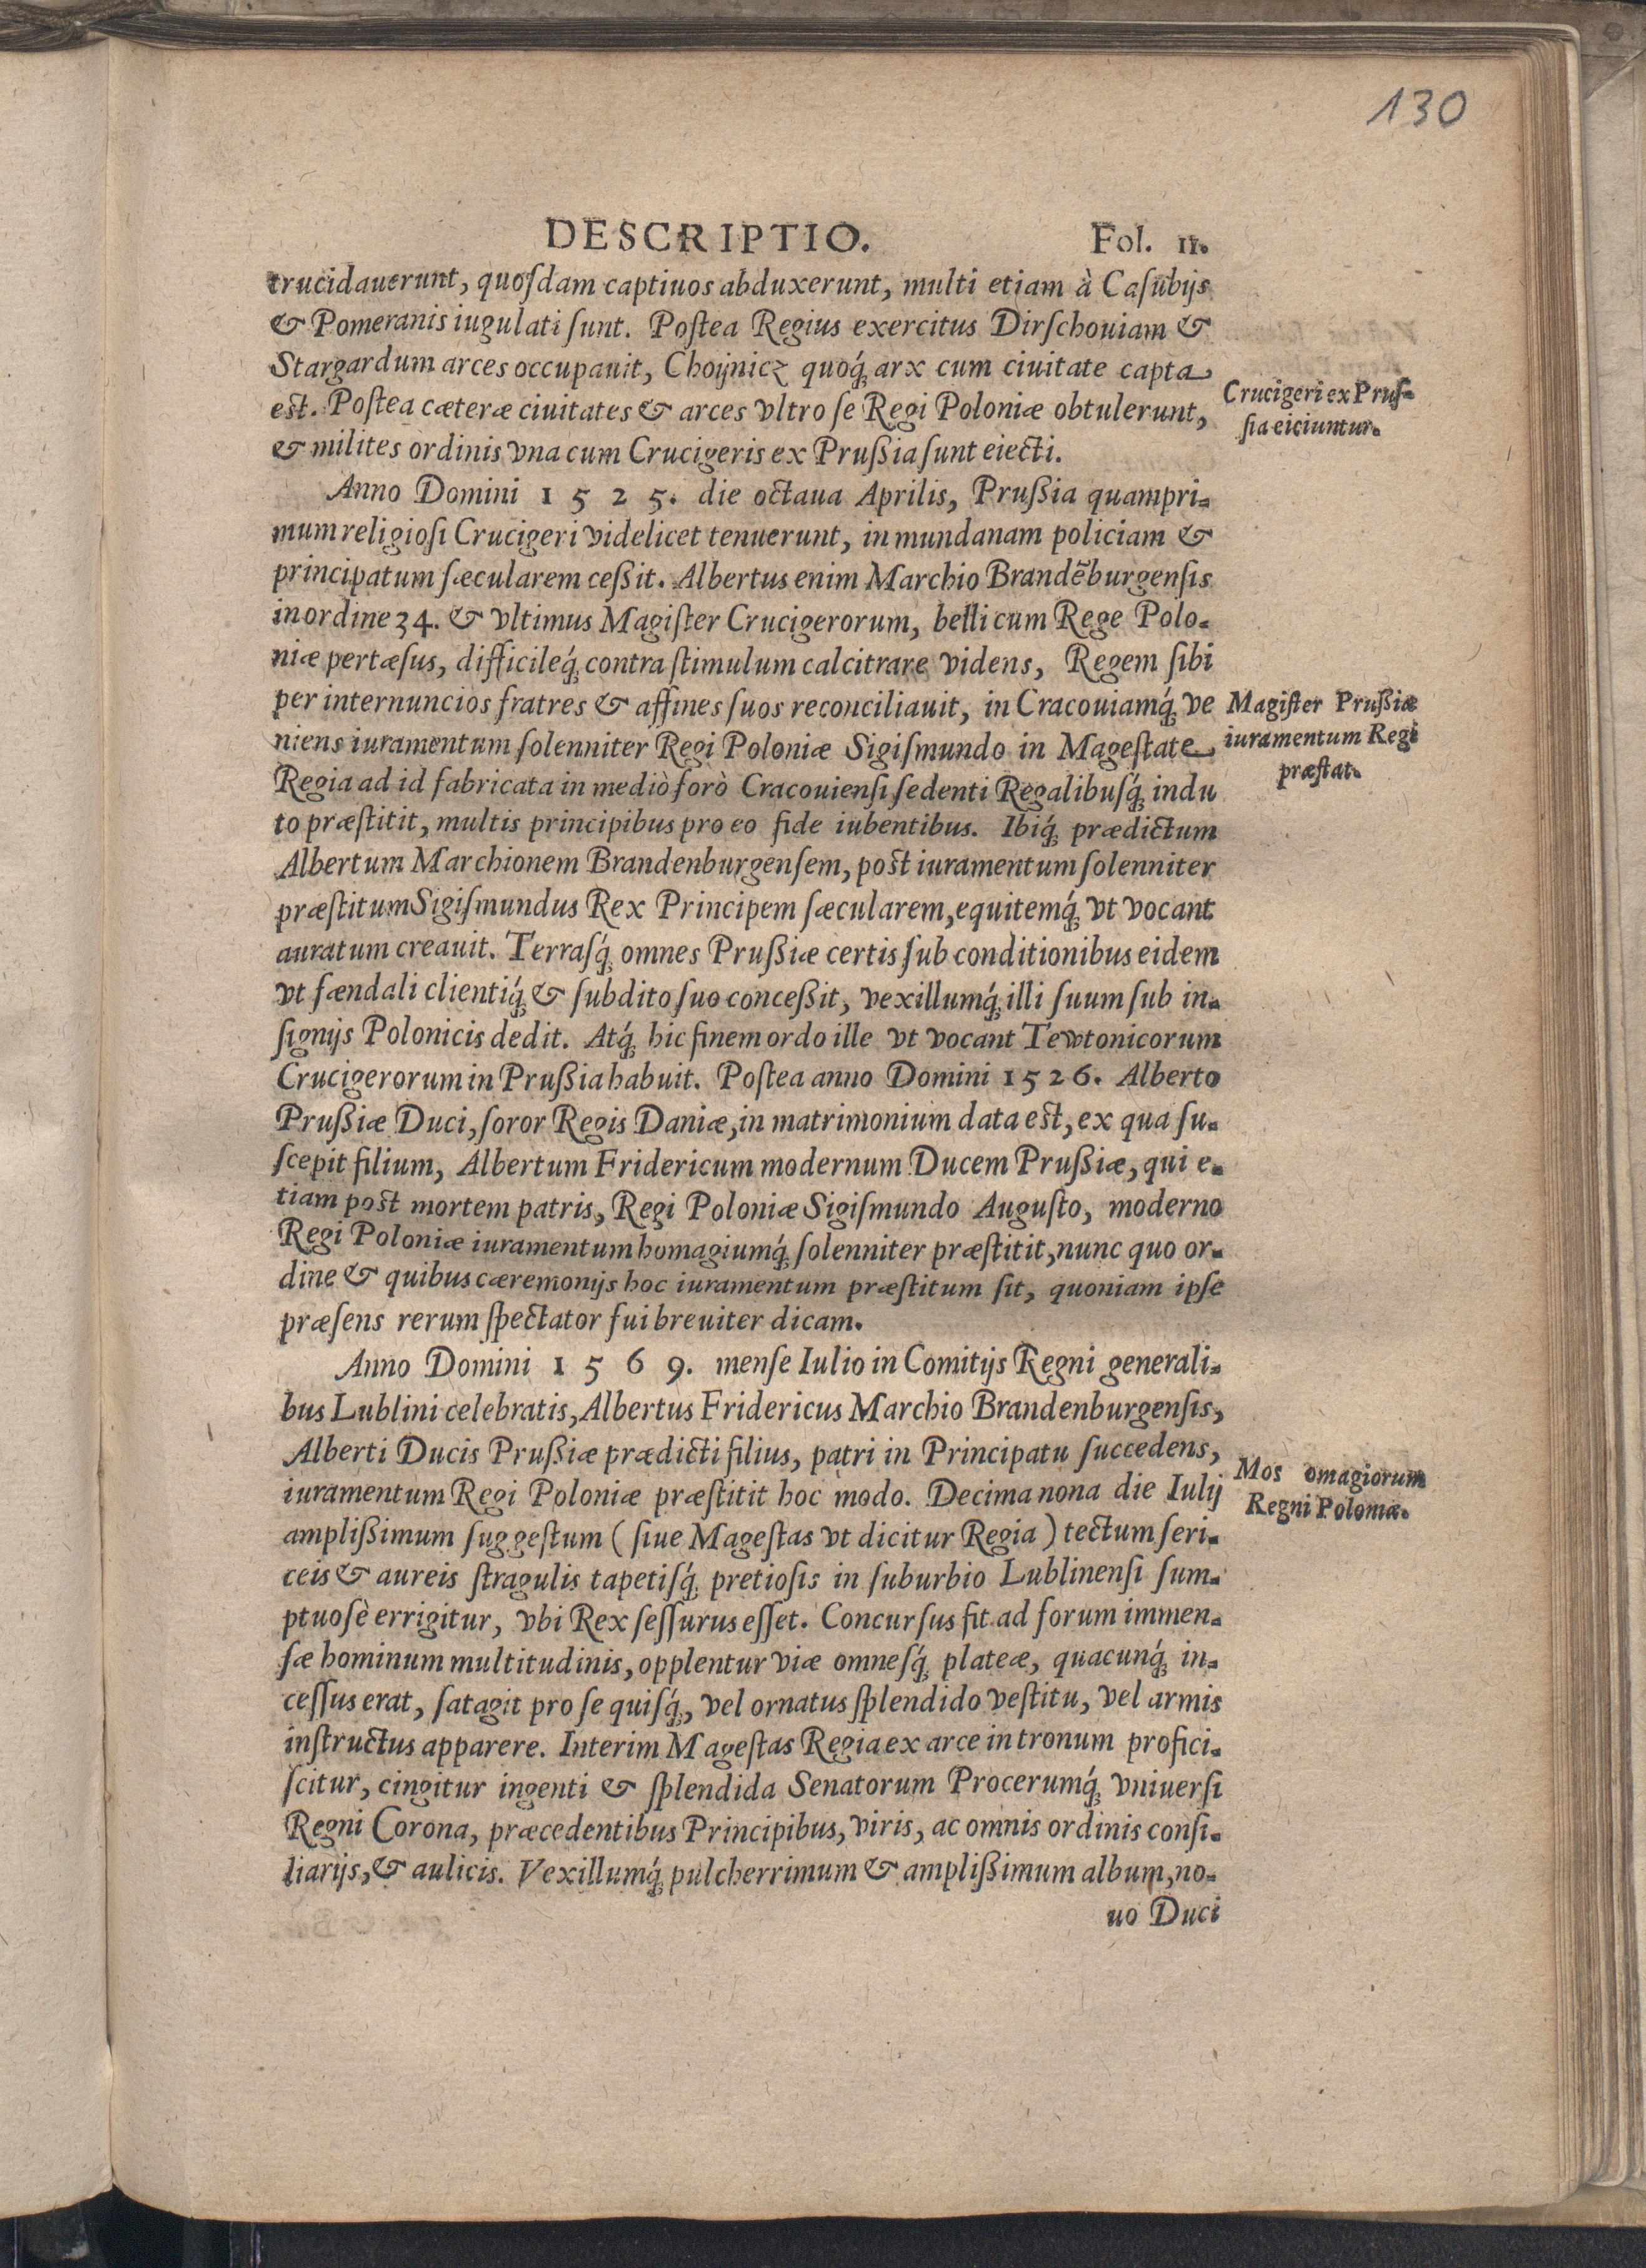 130
DESCRIPTIO. Fol. 11.
trucidauerunt, quoſdam captiuos abduxerunt, multi etiam à Caſubijs
& Pomeranis iugulati ſunt. Poſtea Regius exercitus Dirſchouiam &
Stargardum arces occupauit, Choijnicz quoq́ꝫ arx cum ciuitate capta
est. Poſtea cæteræ ciuitates & arces vltro ſe Regi Poloniæ obtulerunt,
& milites ordinis vna cum Crucigeris ex Prußia ſunt eiecti.
Crucigeri ex Pruſ-
ſia eiciuntur.
Anno Domini 1525. die octaua Aprilis, Prußia quampri-
mum religioſi Crucigeri videlicet tenuerunt, in mundanam policiam &
principatum ſæcularem ceßit. Albertus enim Marchio Brandẽburgenſis
in ordine 34. & vltimus Magiſter Crucigerorum, belli cum Rege Polo-
niæ pertæſus, difficileq́ꝫ contra ſtimulum calcitrare videns, Regem ſibi
per internuncios fratres & affines ſuos reconciliauit, in Cracouiamq́ꝫ ve
niens iuramentum ſolenniter Regi Poloniæ Sigiſmundo in Mageſtate
Regia ad id fabricata in mediò forò Cracouienſi ſedenti Regalibuſq́ꝫ indu
to præſtitit, multis principibus pro eo fide iubentibus. Ibiq́ꝫ prædictum
Magiſter Prußiæ
iuramentum Regi
præſtat.
Albertum Marchionem Brandenburgenſem, post iuramentum ſolenniter
præſtitum Sigiſmundus Rex Principem ſæcularem, equitemq́ꝫ vt vocant
auratum creauit. Terraſq́ꝫ omnes Prußiæ certis ſub conditionibus eidem
vt fændali clientiq́ꝫ & ſubdito ſuo conceßit, vexillumq́ꝫ illi ſuum ſub in-
ſignijs Polonicis dedit. Atq́ꝫ hic finem ordo ille vt vocant Tewtonicorum
Crucigerorum in Prußia habuit. Poſtea anno Domini 1526. Alberto
Prußiæ Duci, ſoror Regis Daniæ, in matrimonium data est, ex qua ſu-
ſcepit filium, Albertum Fridericum modernum Ducem Prußiæ, qui e-
tiam post mortem patris, Regi Poloniæ Sigiſmundo Auguſto, moderno
Regi Poloniæ iuramentum homagiumq́ꝫ ſolenniter præſtitit, nunc quo or-
dine & quibus cæremonijs hoc iuramentum præſtitum ſit, quoniam ipſe
præſens rerum ſpectator fui breuiter dicam.
Anno Domini 1569. menſe Iulio in Comitijs Regni generali-
bus Lublini celebratis, Albertus Fridericus Marchio Brandenburgenſis,
Alberti Ducis Prußiæ prædicti filius, patri in Principatu ſuccedens,
iuramentum Regi Poloniæ præſtitit hoc modo. Decima nona die Iulij
Mos omagiorum
Regni Poloniæ.
amplißimum ſuggeſtum (ſiue Mageſtas vt dicitur Regia) tectum ſeri-
ceis & aureis ſtragulis tapetiſq́ꝫ pretioſis in ſuburbio Lublinenſi ſum-
ptuoſè errigitur, vbi Rex ſeſſurus eſſet. Concurſus fit ad forum immen-
ſæ hominum multitudinis, opplentur viæ omneſq́ꝫ plateæ, quacunq́ꝫ in-
ceſſus erat, ſatagit pro ſe quiſq́ꝫ, vel ornatus ſplendido veſtitu, vel armis
inſtructus apparere. Interim Mageſtas Regia ex arce in tronum profici-
ſcitur, cingitur ingenti & ſplendida Senatorum Procerumq́ꝫ vniuerſi
Regni Corona, præcedentibus Principibus, viris, ac omnis ordinis conſi-
liarijs, & aulicis. Vexillumq́ꝫ pulcherrimum & amplißimum album, no-
uo Duci